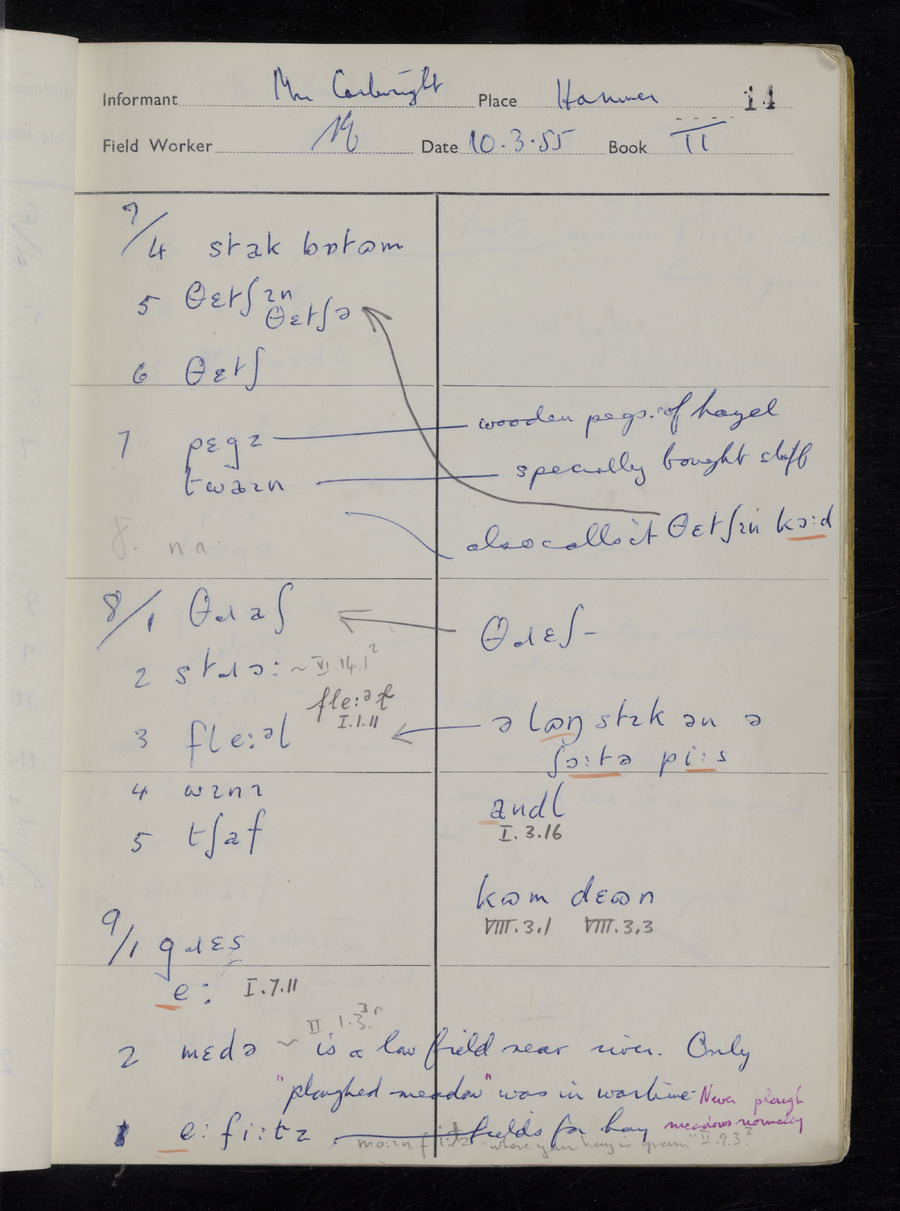 Informant Mr Cartwright Place Hanmer 14
Field Worker Date 10.3.55 Book II
7/4 stak bɒtəm
5 θɛtʃɪn
θɛtʃə
6 θɛtʃ
7 pɛgz wooden pegs of hazel
twaɪn specially bought stuff
also calls it θɛtʃɪn kɔ:d
8. na
8/1 θɹaʃ θɹɛʃ-
2 stɹɔ: ~ VI.14.1²
fle:ət
I.1.11
3 fle:əl ə lɒŋ stɪk ən ə
ʃɔ:tə pi:s
4 wɪnɪ andl
I.3.16
5 tʃaf
kʊm dɛʊn
VIII.3.1 VIII.3.3
9/1 gɹɛs
e: I.7.11
2 mɛdə ~ is a low field near river. Only
II.1.3
"ploughed meadow" was in wartime Never plough
meadows normally
1 e: fi:tz fields for hay
"where your hay is grown" II.9.3